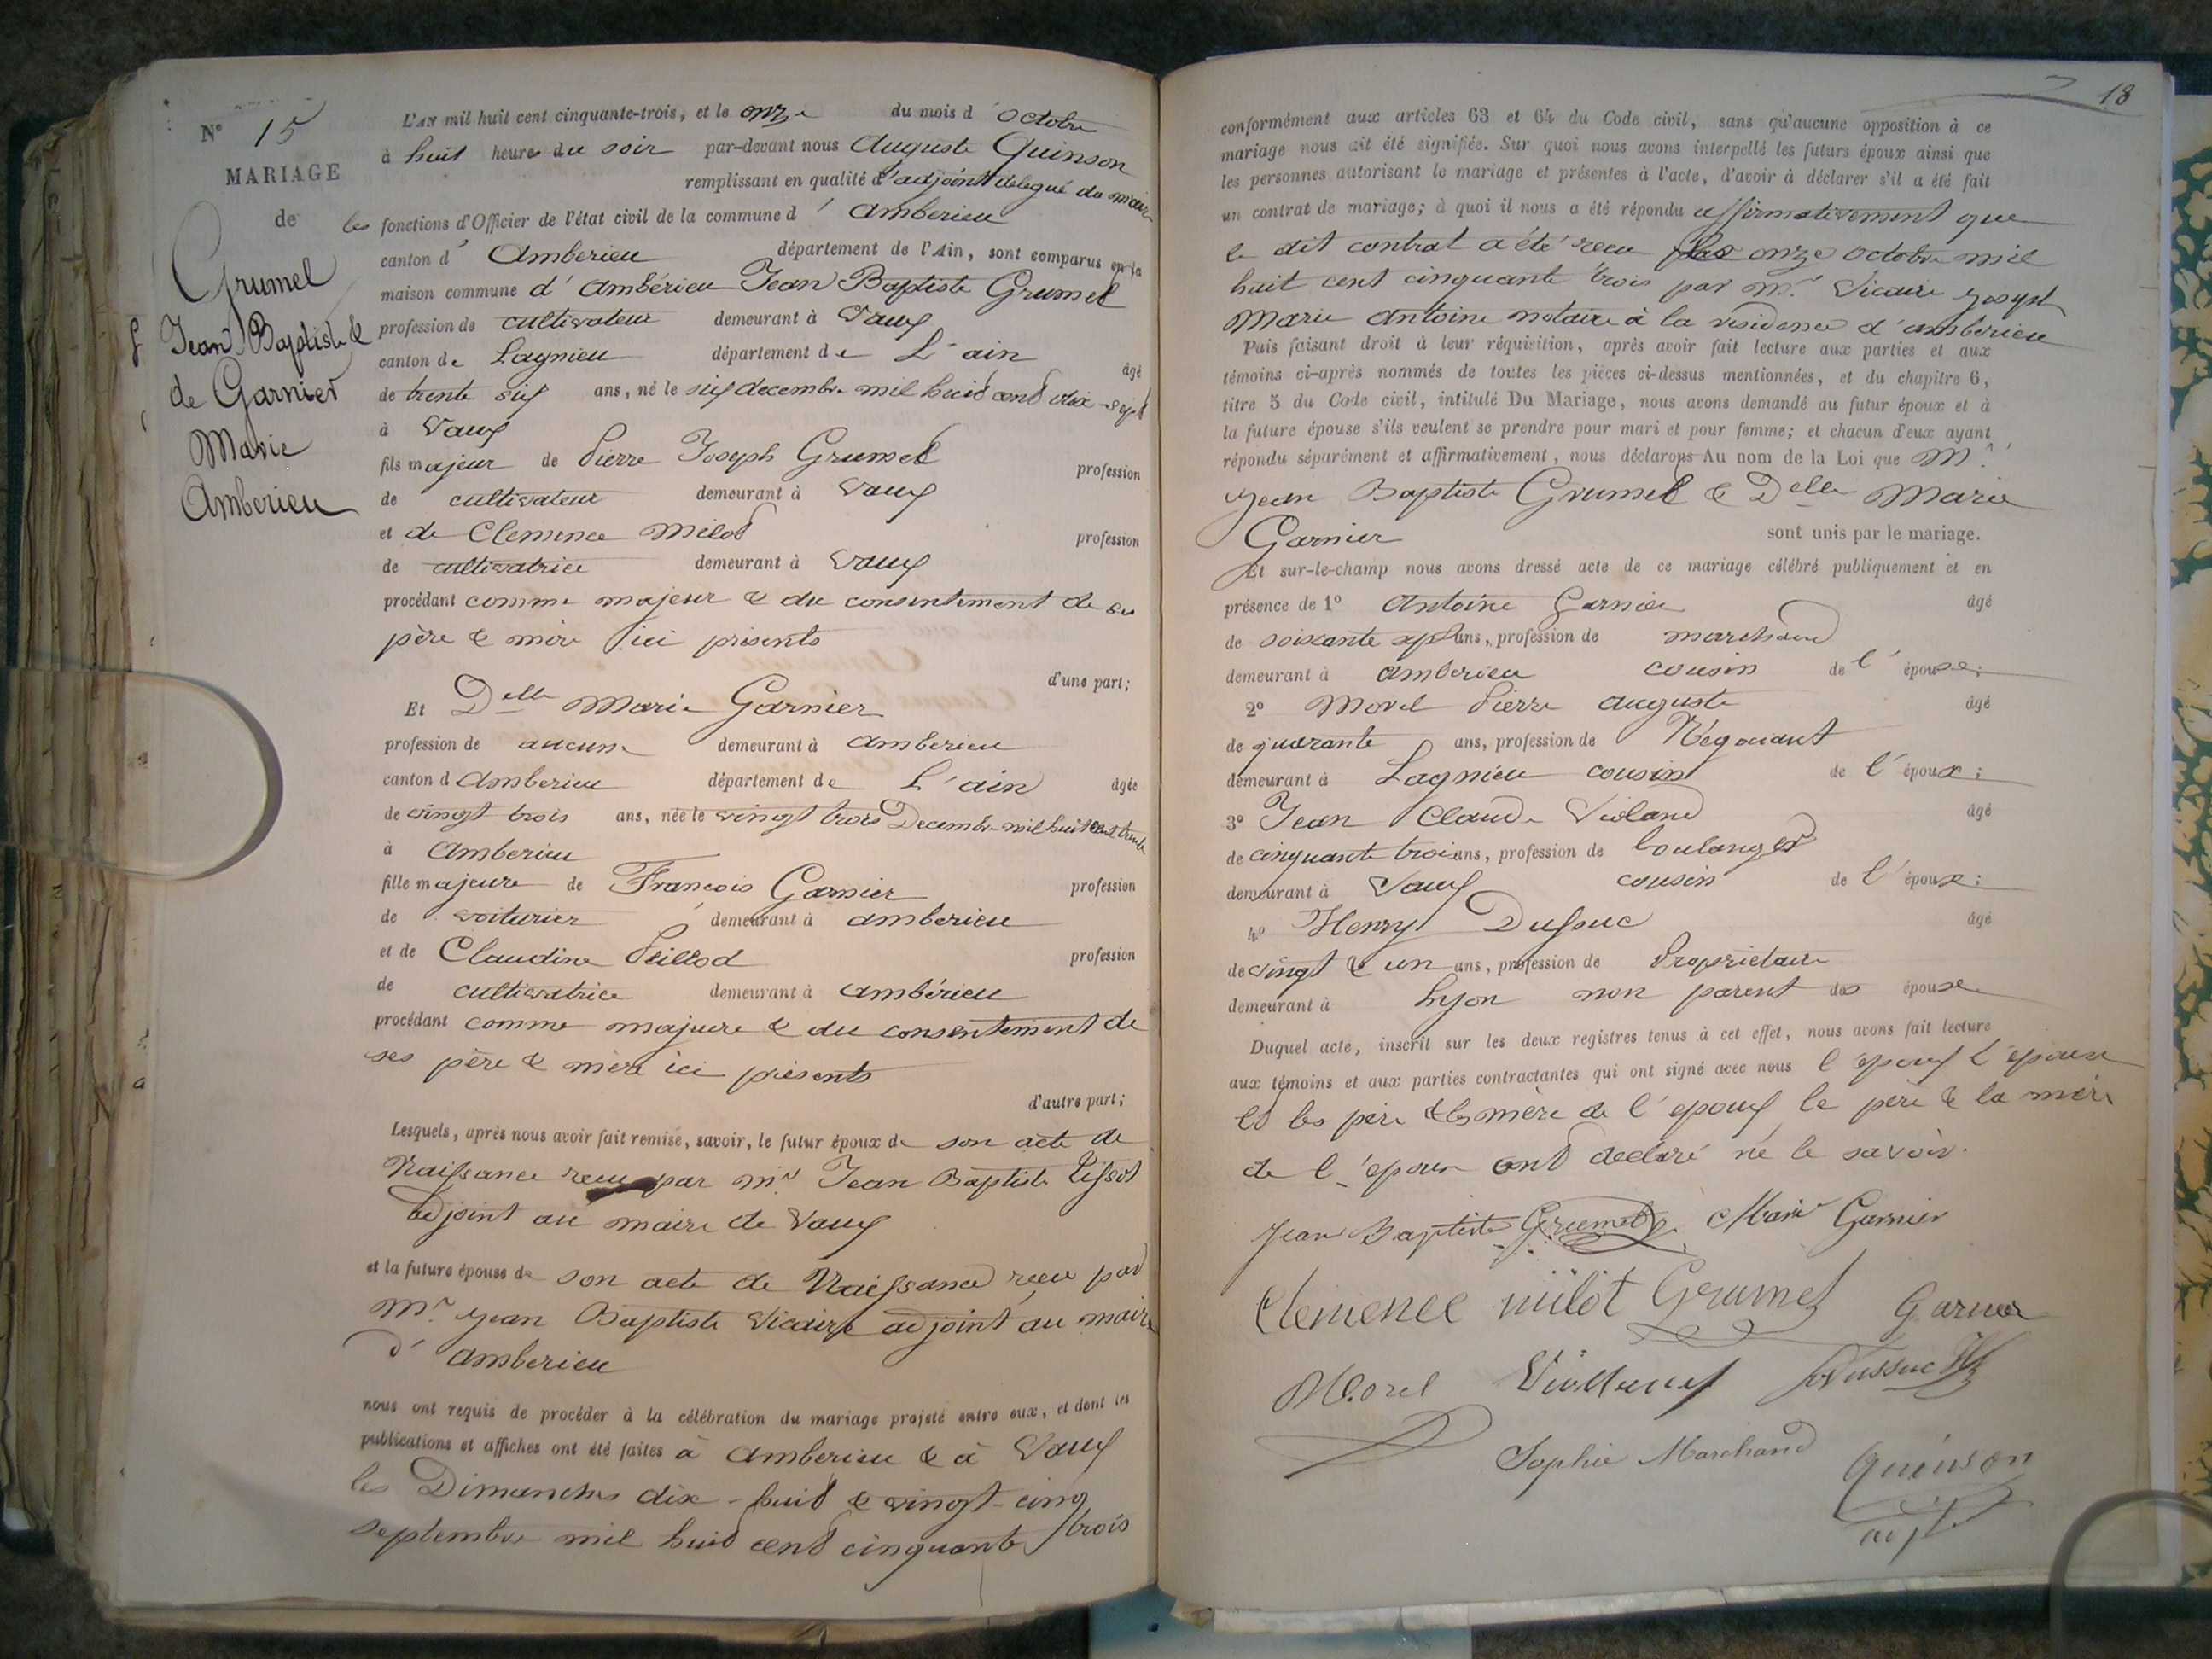 N° 15
MARIAGE
de
Grumel
Jean Baptiste &
de Garnier
Marie
Amberieu
L'AN mil huit cent cinquante-trois, et le onze du mois d'octobre
à huit heures du soir par-devant nous Auguste Quinson
remplissant en qualité d'adjoint délegué du maire
les fonctions d'Officier de l'état civil de la commune d'Amberieu
canton d'Amberieu département de l'Ain, sont comparus en la
maison commune d'Ambérieu Jean Baptiste Grumel
profession de cultivateur demeurant à Vaux
canton de Lagnieu département de L'ain âgé
de trente six ans, né le six decembre mil huit cent dix-sept
à Vaux
fils majeur de Pierre Joseph Grumel profession
de cultivateur demeurant à Vaux
et de Clemence Milot profession
de cultivatrice demeurant à Vaux
procédant comme majeur & du consentement de ses
père & mère ici présents
d'une part;
Et Delle Marie Garnier
profession de aucune demeurant à Amberieu
canton d Amberieu département de L'ain âgée
de vingt trois ans, née le vingt trois Decembre mil huit cent trente
à Amberieu
fille majeure de François Garnier profession
de voiturier demeurant à amberieu
et de Claudine Peillod profession
de cultivatrice demeurant à ambérieu
procédant comme majeure & du consentement de
ses père & mère ici présents
d'autre part;
Lesquels, après nous avoir fait remise, savoir, le futur époux de son acte de
Naissance reçu par Mr Jean Baptiste Tissot
adjoint au maire de Vaux
et la future épouse de son acte de Naissance reçu par
Mr. Jean Baptiste Vicaire adjoint au maire
d'amberieu
nous ont requis de procéder à la célébration du mariage projeté entre eux, et dont les
publications et affiches ont été faites à Amberieu & à Vaux
les Dimanches dix-huit & vingt-cinq
septembre mil huit cent cinquante trois
18
conformément aux articles 63 et 64 du Code civil, sans qu'aucune opposition à ce
mariage nous ait été signifiée. Sur quoi nous avons interpellé les futurs époux ainsi que
les personnes autorisant le mariage et présentes à l'acte, d'avoir à déclarer s'il a été fait
un contrat de mariage; à quoi il nous a été répondu affirmativement que
le dit contrat a été reçu le onze octobre mil
huit cent cinquante trois par Mr. Vicaire Joseph
Marie Antoine notaire à la résidence d'amberieu
Puis faisant droit à leur réquisition, après avoir fait lecture aux parties et aux
témoins ci-après nommés de toutes les pièces ci-dessus mentionnées, et du chapitre 6,
titre 5 du Code civil, intitulé Du Mariage, nous avons demandé au futur époux et à
la future épouse s'ils veulent se prendre pour mari et pour femme; et chacun d'eux ayant
répondu séparément et affirmativement, nous déclarons Au nom de la Loi que Mr.
Jean Baptiste Grumel & Delle Marie
Garnier sont unis par le mariage.
Et sur-le-champ nous avons dressé acte de ce mariage célébré publiquement et en
présence de 1° Antoine Garnier âgé
de soixante sept ans, profession de marchand
demeurant à amberieu cousin de l'épouse;
2° Morel Pierre auguste âgé
de quarante ans, profession de Négociant
demeurant à Lagnieu cousin de l'époux;
3° Jean Claude Violand âgé
de cinquante trois ans, profession de boulanger
demeurant à Vaux cousin de l'époux;
4° Henry Dussuc âgé
de vingt & un ans, profession de Propriétaire
demeurant à Lyon non parent des épouse
Duquel acte, inscrit sur les deux registres tenus à cet effet, nous avons fait lecture
aux témoins et aux parties contractantes qui ont signé avec nous l'époux l'épouse
et les père & la mère de l'epoux le père & la mère
de l'epouse ont declaré ne le savoir.
Jean Baptiste Grumel Marie Garnier
Clemence milot Grumel Garnier
Morel Dussuc
Sophie Marchand Quinson
adj